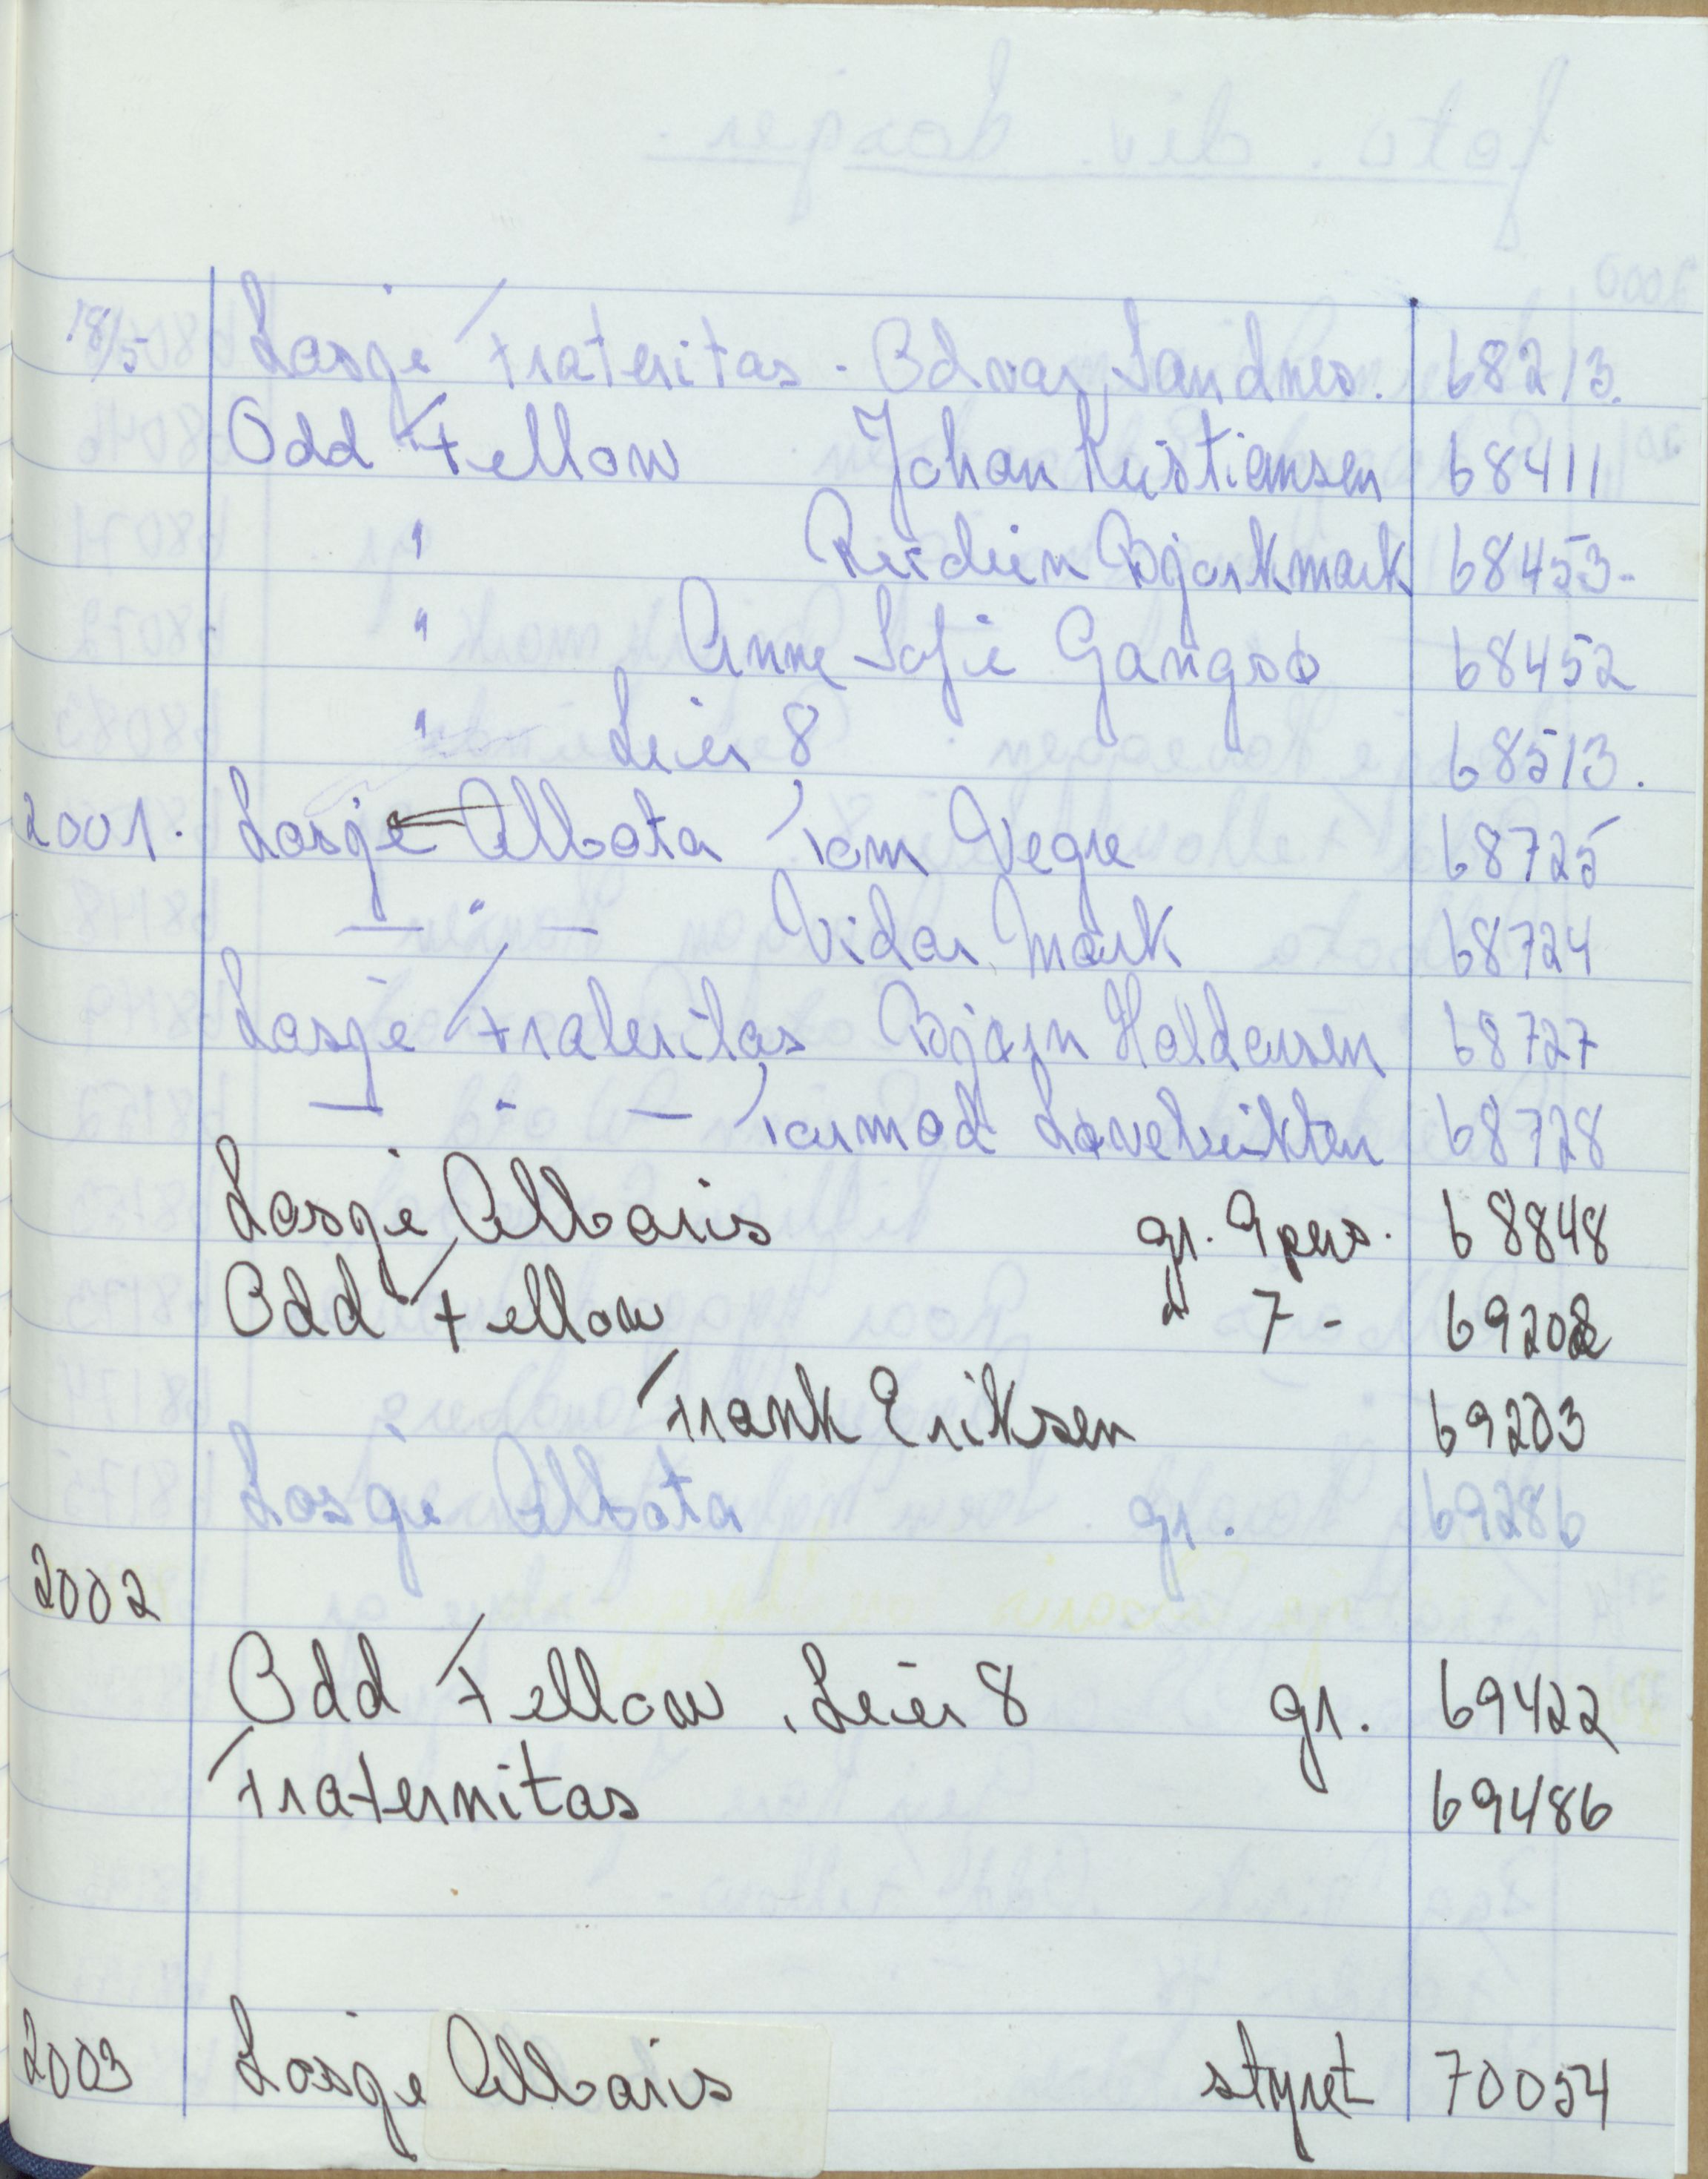 18/5 Losje Frateritas. Odvar Sandnes. 68213.
Odd Fellow Johan Kristiansen 68411
" Bjørkmark 68453-
" Anne Sofie Gangsø 68452
" Leir 8 68513.
2001. Losje Albota Tom Vegre 68725
— " — Vidar Mark 68724
Losje Frateritas Bjørn Haldorsen 68727
— " — Tormod Løvebrikten 68728
Losje Albaris gr. 9 pers. 68848
Odd Fellow " 7 - 69202
Frank Eriksen 69203
Losje Albota gr. 69286
2002
Odd Fellow. Leir 8 gr. 69422
Fraternitas 69486
2003 Losje Albaris styret 70054